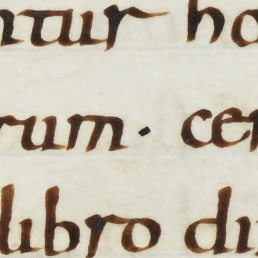 ntur ho
rum · cer
libro di